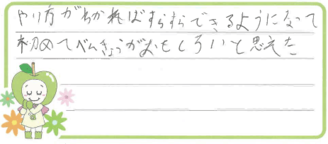 やり方がわかればすらすらできるようになって
初めてべんきょうがおもしろいと思えた